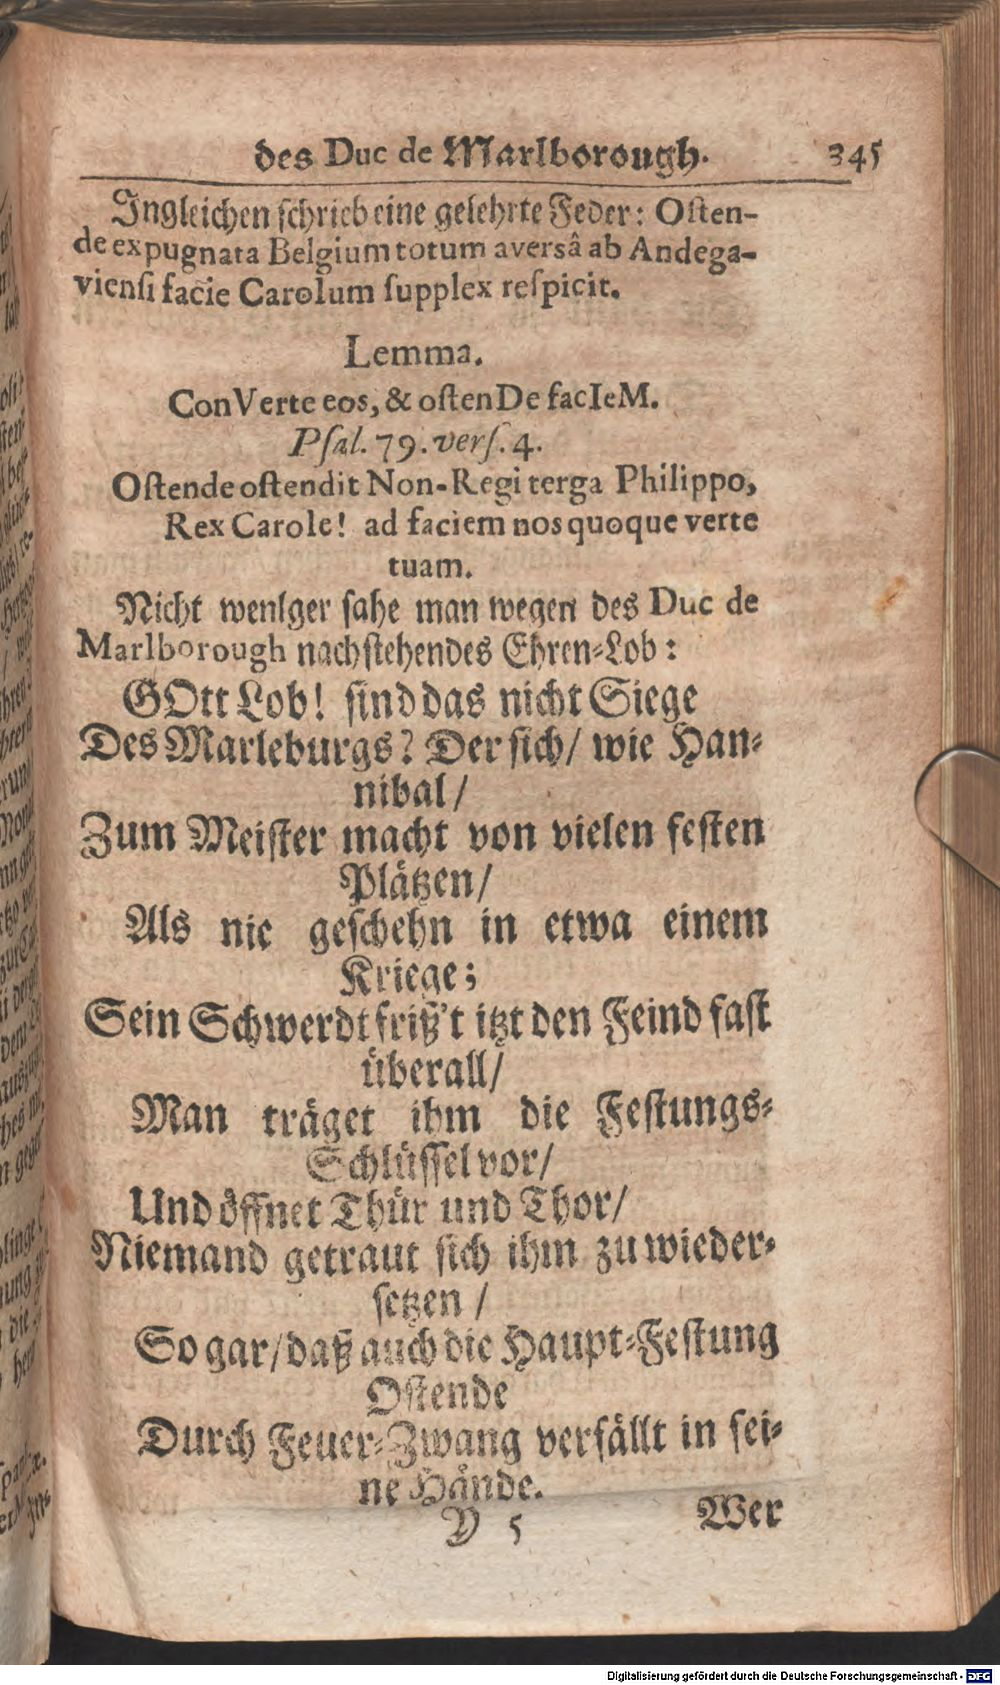 des Duc de Marlborough. 345
Ingleichen schrieb eine gelehrte Feder: Osten-
de expugnata Belgium totum aversâ ab Andega-
viensi facie Carolum supplex respicit.
Lemma.
ConVerte eos, & ostenDe facIeM.
Psal. 79. vers. 4.
Ostende ostendit Non-Regi terga Philippo,
Rex Carole! ad faciem nos quoque verte
tuam.
Nicht weniger sahe man wegen des Duc de
Marlborough nachstehendes Ehren-Lob:
GOtt Lob! sind das nicht Siege
Des Marleburgs? Der sich/ wie Han-
nibal/
Zum Meister macht von vielen festen
Plätzen/
Als nie geschehn in etwa einem
Kriege;
Sein Schwerdt friß't itzt den Feind fast
überall/
Man träget ihm die Festungs-
Schlüssel vor/
Und öffnet Thür und Thor/
Niemand getraut sich ihm zu wieder-
setzen /
So gar/ daß auch die Haupt-Festung
Ostende
Durch Feuer-Zwang verfällt in sei-
ne Hände.
Y 5 Wer
Digitalisierung gefördert durch die Deutsche Forschungsgemeinschaft - DFG